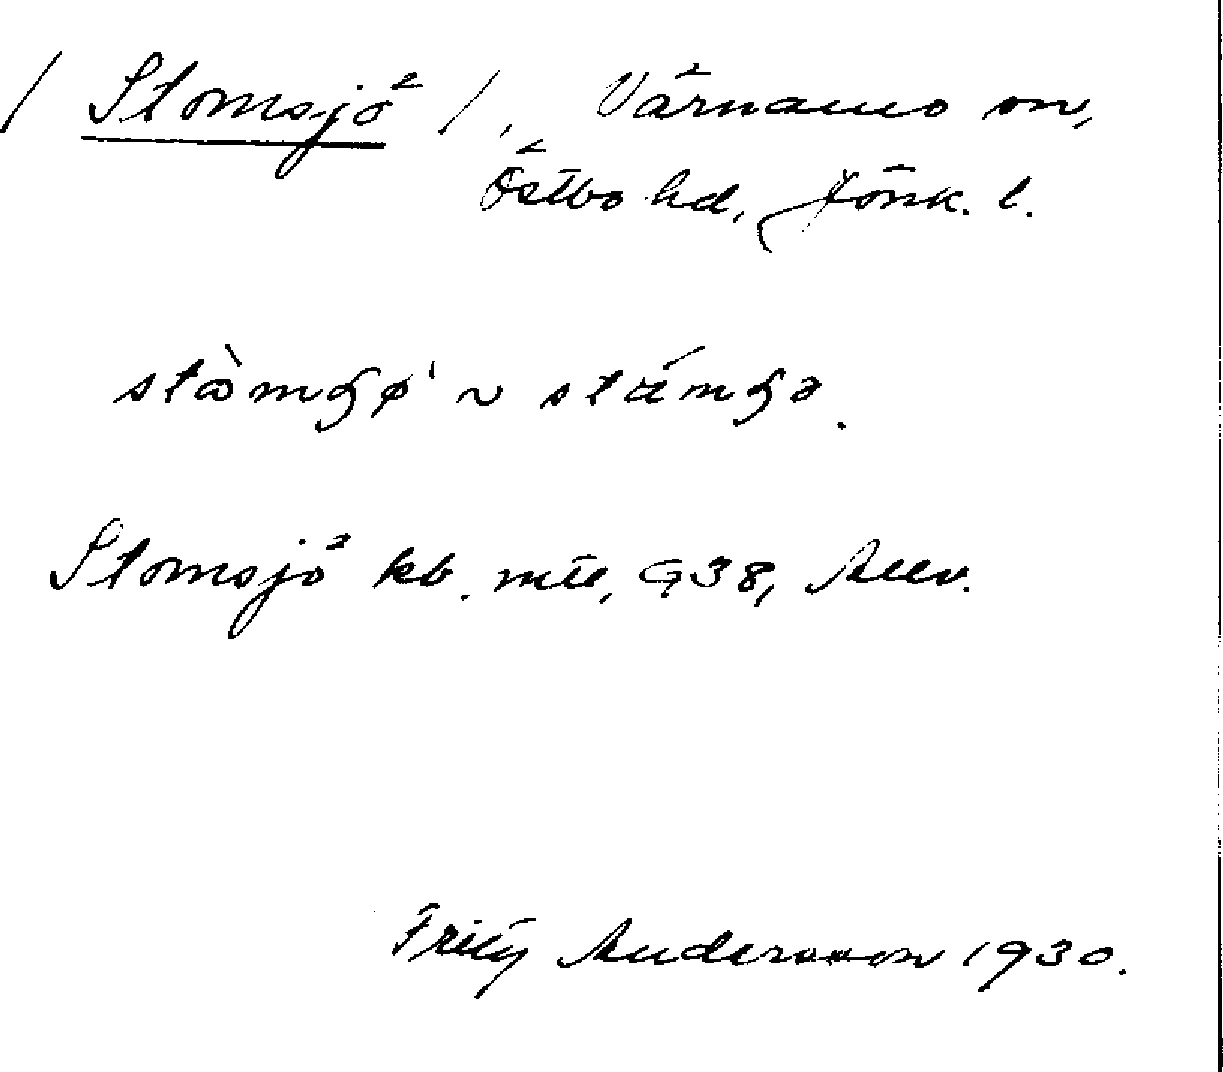 / Stomsjö /, Värnamo sn,
Östbo hd, Jönk. l.
Stomsjö kb. mtl, G38, Allv.
Fritz Andersson 1930.